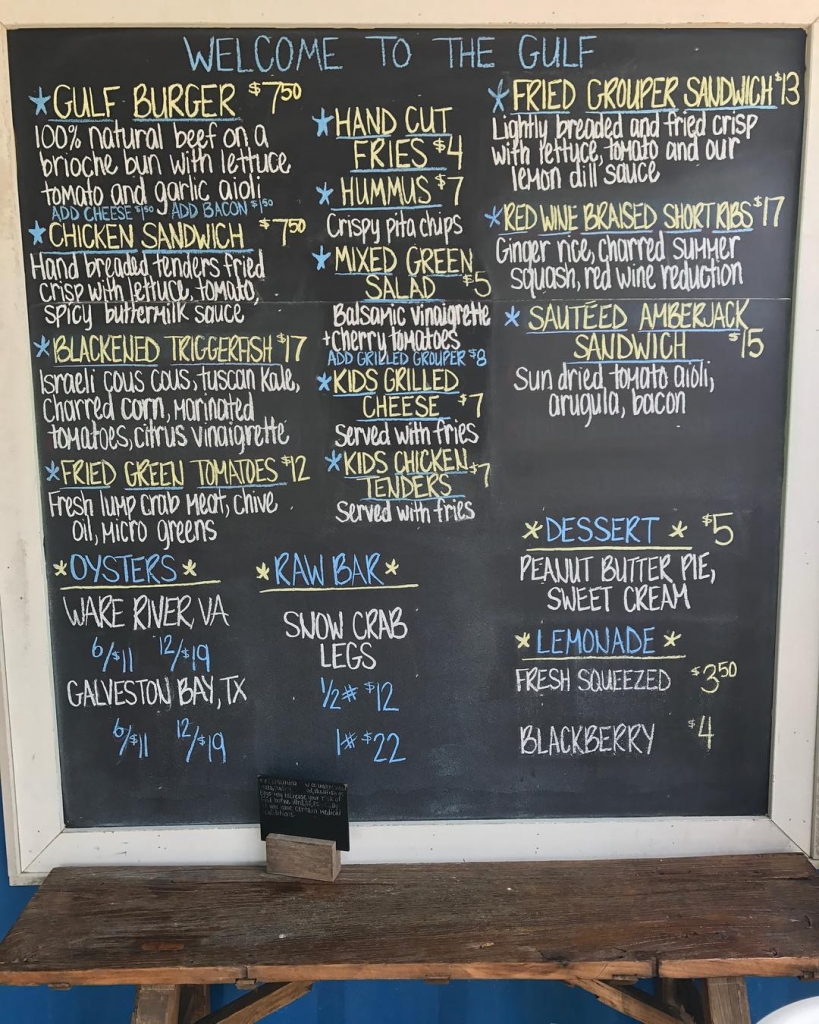 WELCOME TO THE GULF
GULF BURGER $7.50
100% natural beef on a
brioche bun with lettuce
tomato and garlic aioli
ADD CHEESE $1.50 ADD BACON $1.50
CHICKEN SANDWICH $7.50
Hand breaded tenders fried
crisp with lettuce, tomato,
spicy buttermilk sauce
BLACKENED TRIGGERFISH $17
Israeli cous cous, tuscan kale,
charred corn, marinated
tomatoes, citrus vinaigrette
FRIED GREEN TOMATOES $12
Fresh lump crab meat, chive
oil, micro greens
HAND CUT
FRIES $4
HUMMUS $7
Crispy pita chips
MIXED GREEN
SALAD $5
Balsamic vinaigrette
+cherry tomatoes
ADD GRILLED GROUPER $8
KIDS GRILLED
CHEESE $7
Served with fries
KIDS CHICKEN
TENDERS $7
Served with fries
FRIED GROUPER SANDWICH $13
Lightly breaded and fried crisp
with lettuce, tomato and our
lemon dill sauce
RED WINE BRAISED SHORT RIBS $17
Ginger rice, charred summer
squash, red wine reduction
SAUTÉED AMBERJACK
SANDWICH $15
Sun dried tomato aioli,
arugula, bacon
*OYSTERS*
WARE RIVER, VA
6/$11 12/$19
GALVESTON BAY, TX
6/$11 12/$19
*RAW BAR*
SNOW CRAB
LEGS
1/2# $12
1# $22
*DESSERT* $5
PEANUT BUTTER PIE,
SWEET CREAM
*LEMONADE*
FRESH SQUEEZED $3.50
BLACKBERRY $4